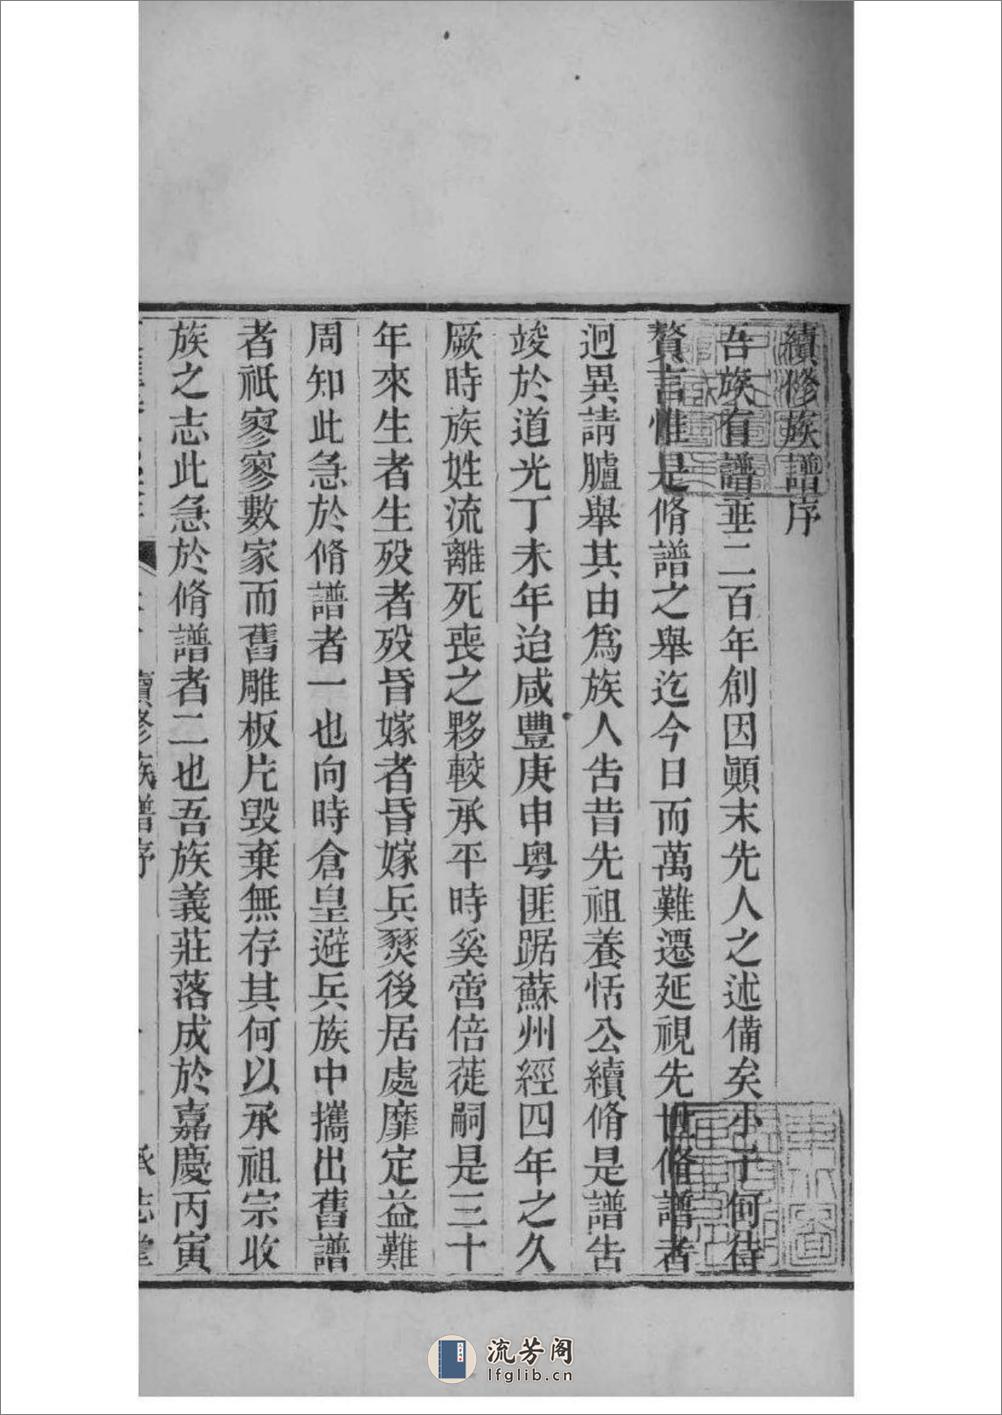 續修族譜序
吾族有譜垂二百年創因顚末先人之述備矣小子何待
贅言惟是脩譜之舉迄今日而萬難遷延視先世脩譜者
迥異請臚舉其由爲族人告昔先祖養恬公續脩是譜告
竣於道光丁未年迨咸豐庚申粤匪踞蘇州經四年之久
厥時族姓流離死喪之夥較承平時奚啻倍蓰嗣是三十
年來生者生殁者殁昏嫁者昏嫁兵燹後居處靡定益難
周知此急於脩譜者一也向時倉皇避兵族中攜出舊譜
者祇寥寥數家而舊雕板片毁棄無存其何以承祖宗收
族之志此急於脩譜者二也吾族義莊落成於嘉慶丙寅
續修族譜序
承志堂
流芳阁
lfglib.cn